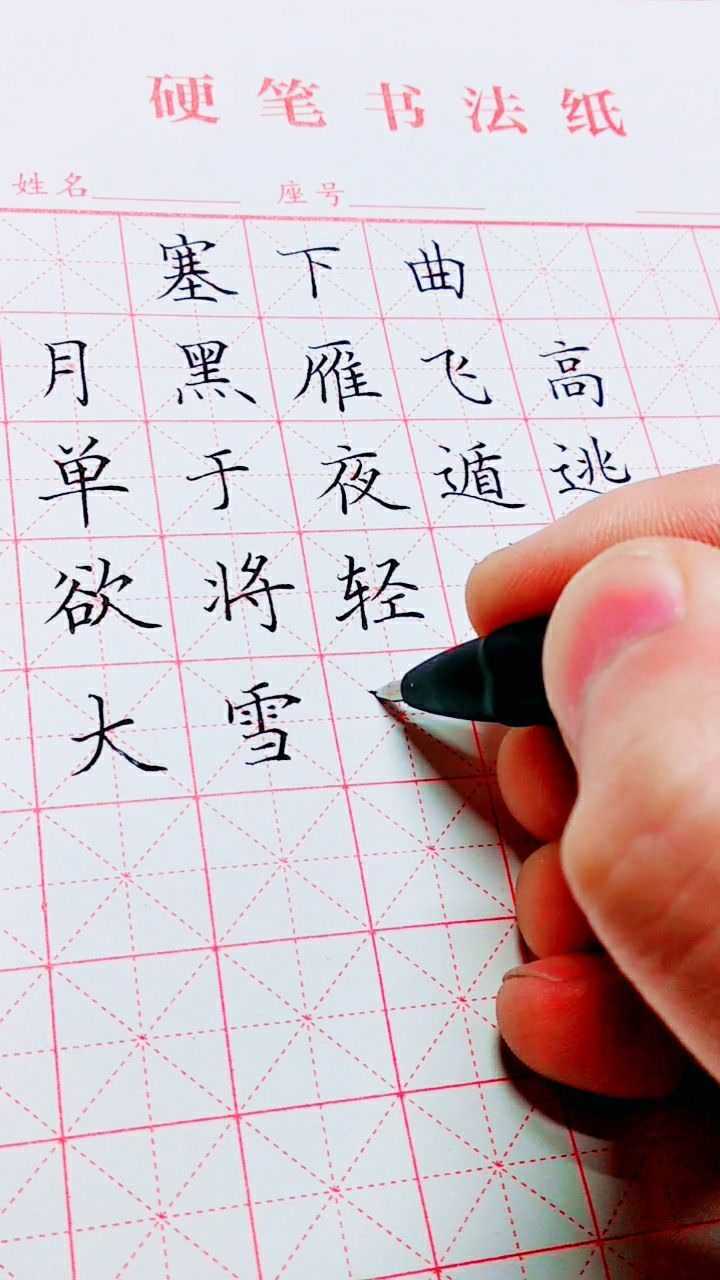 硬笔书法纸
姓名 座号
塞下曲
月黑雁飞高
单于夜遁逃
欲将轻
大雪